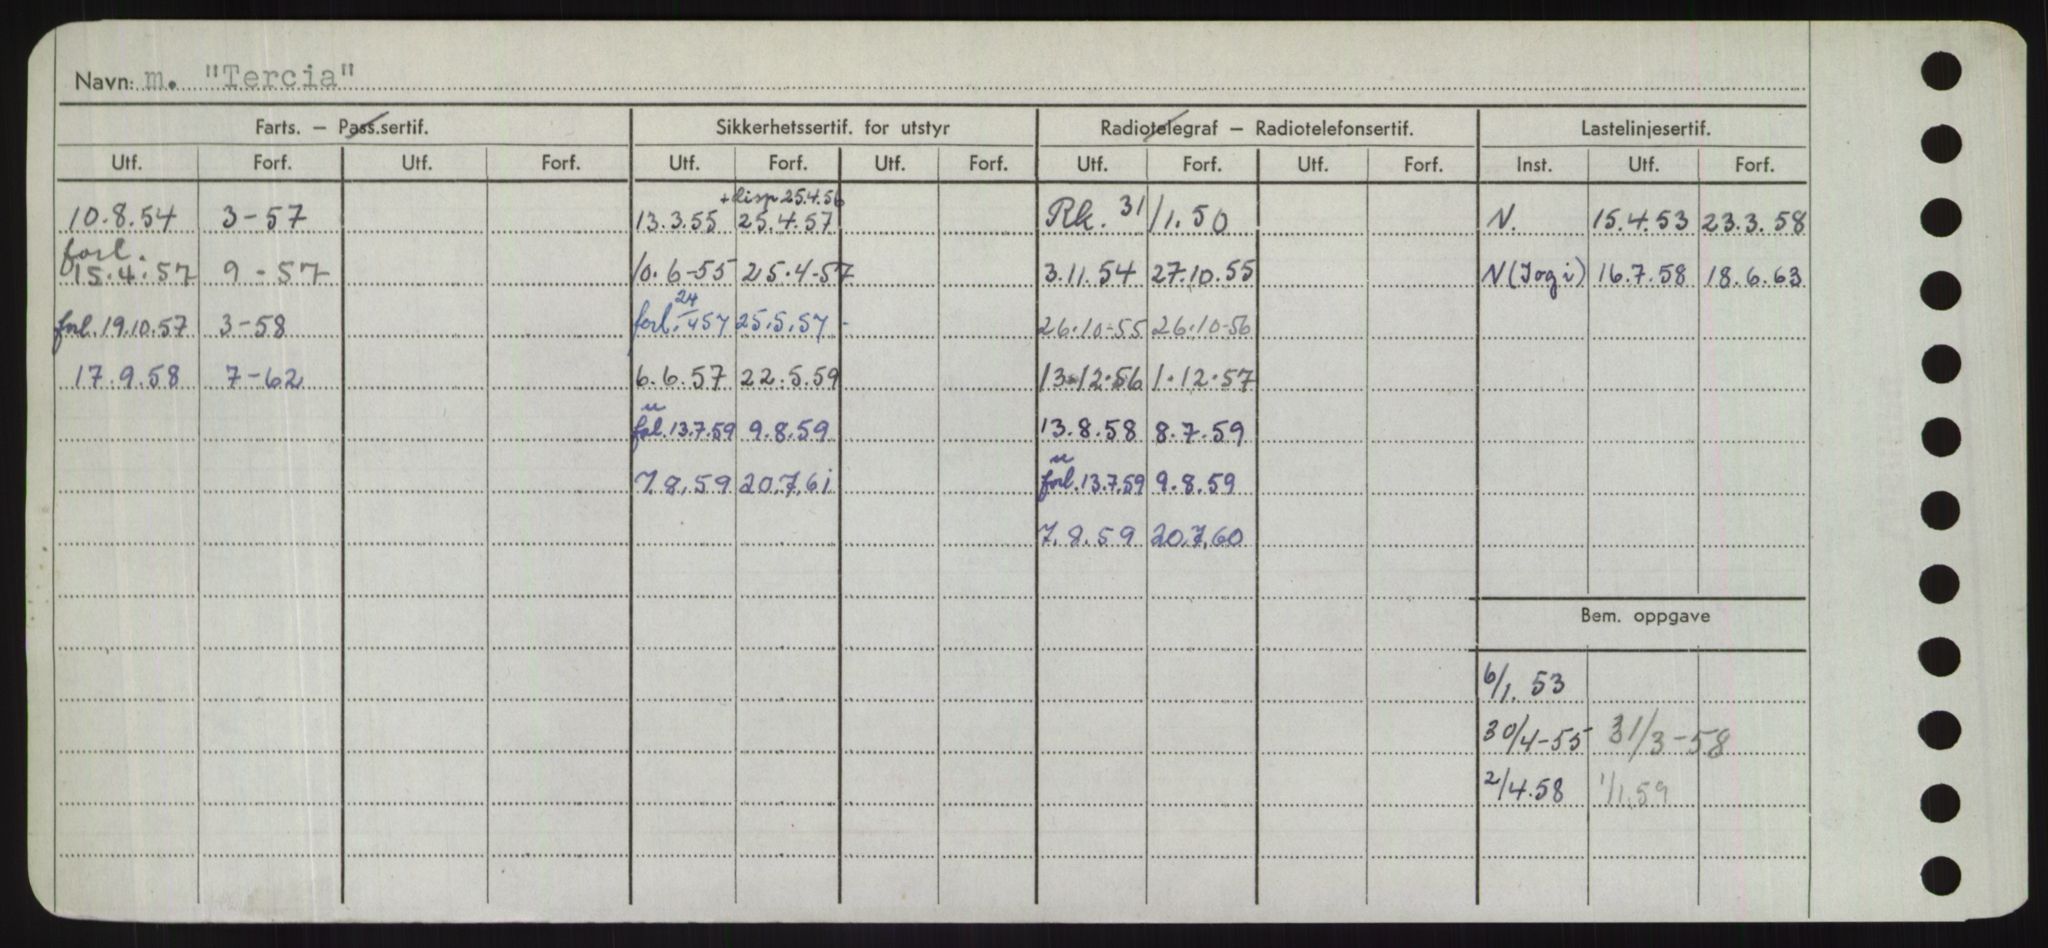 Navn: m. "Tercia"
Farts. – Pass.sertif. Sikkerhetssertif. for utstyr Radiotelegraf – Radiotelefonsertif. Lastelinjesertif.
Utf. Forf. Utf. Forf. Utf. Forf. Utf. Forf. Utf. Forf. Utf. Forf. Inst. Utf. Forf.
+ disp 25.4.56
10.8.54 3-57 13.3.55 25.4.57 Rk. 31/1.50 N. 15.4.53 23.3.58
forl.
15.4.57 9-57 10.6-55 25.4-57 3.11.54 27.10.55 N (Jogi) 16.7.58 18.6.63
forl. 19.10.57 3-58 forl. 24/4 57 25.5.57 26.10-55 26.10-56
17.9.58 7-62 6.6.57 22.5.59 13.12.56 1.12.57
u
forl. 13.7.59 9.8.59 13.8.58 8.7.59
u
7.8.59 20.7.61 forl. 13.7.59 9.8.59
7.8.59 20.7.60
Bem. oppgave
6/1. 53
30/4-55 31/3-58
2/4.58 1/1.59